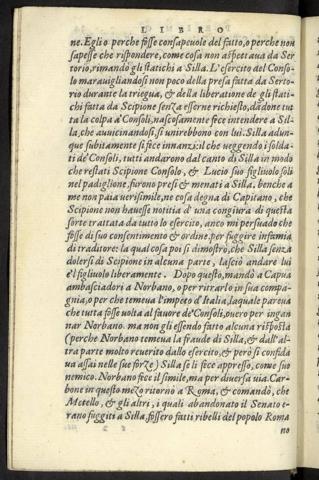 LIBRO
ne. Egli o perche fosse consapeuole del fatto, o perche non
sapesse che rispondere, come cosa non aspettaua da Ser
torio, rimandò gli statichi a Silla. L'esercito del Conso-
lo marauigliandosi non poco della presa fatta da Serto-
rio durante la triegua, & della liberatione de gli stati-
chi fatta da Scipione senza esserne richiesto, dādone tut
ta la colpa a' Consoli, nascosamente fece intendere a Sil-
la, che auuicinandosi, si unirebbono con lui. Silla adun-
que subitamente si fece innanzi: il che ueggendo i solda-
ti de' Consoli, tutti andarono dal canto di Silla in modo
che restati Scipione Consolo, & Lucio suo figliuolo soli
nel padiglione, furono presi & menati a Silla, benche a
me non paia uerisimile, ne cosa degna di Capitano, che
Scipione non hauesse notitia d' una congiura di questa
sorte trattata da tutto lo esercito, anco mi persuado che
fosse di suo consentimento & ordine, per fuggire infamia
di traditore: la qual cosa poi si dimostrò, che Silla senza
dolersi di Scipione in alcuna parte, lasciò andare lui
e'l figliuolo liberamente. Dopo questo, mandò a Capua
ambasciadori a Norbano, o per ritrarlo in sua compa-
gnia, o per che temeua l'impeto d'Italia, laquale pareua
che tutta fosse uolta al fauore de' Consoli, ouero per ingan
nar Norbano. ma non gli essendo fatto alcuna risposta
(perche Norbano temeua la fraude di Silla, & dall'al-
tra parte molto reuerito dallo esercito, & però si confida
ua assai nelle sue forze) Silla se li fece appresso, come suo
nemico. Norbano fece il simile, ma per diuersa uia. Car-
bone in questo mezo ritornò a Roma, & comandò, che
Metello, & gli altri, i quali abandonato il Senato e-
rano fuggiti a Silla, fossero fatti ribelli del popolo Roma
no